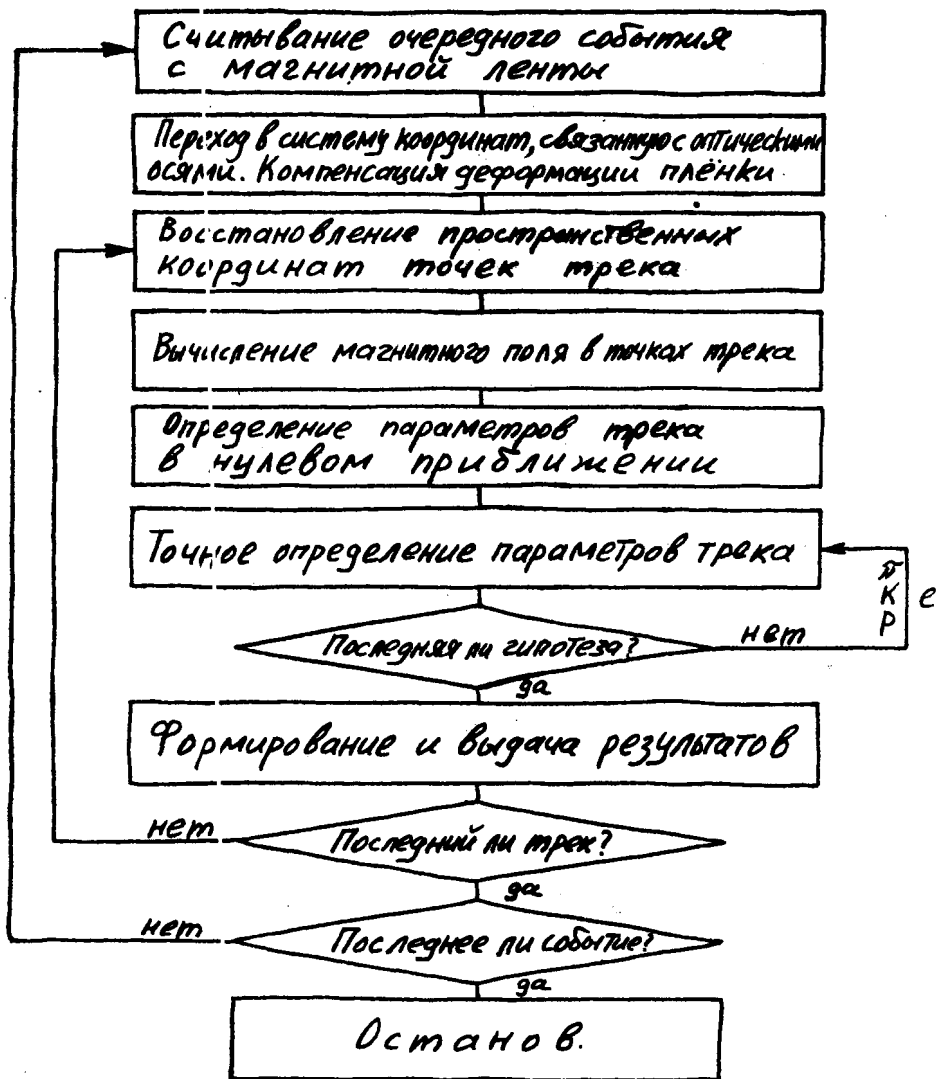 Считывание очередного события
с магнитной ленты
Переход в систему координат, связанную с оптическими
осями. Компенсация деформации плёнки
Восстановление пространственных
координат точек трека
Вычисление магнитного поля в точках трека
Определение параметров трека
в нулевом приближении
Точное определение параметров трека
π
К
Р
е
Последняя ли гипотеза?
нет
да
Формирование и выдача результатов
нет
Последний ли трек?
да
нет
Последнее ли событие?
да
Останов.